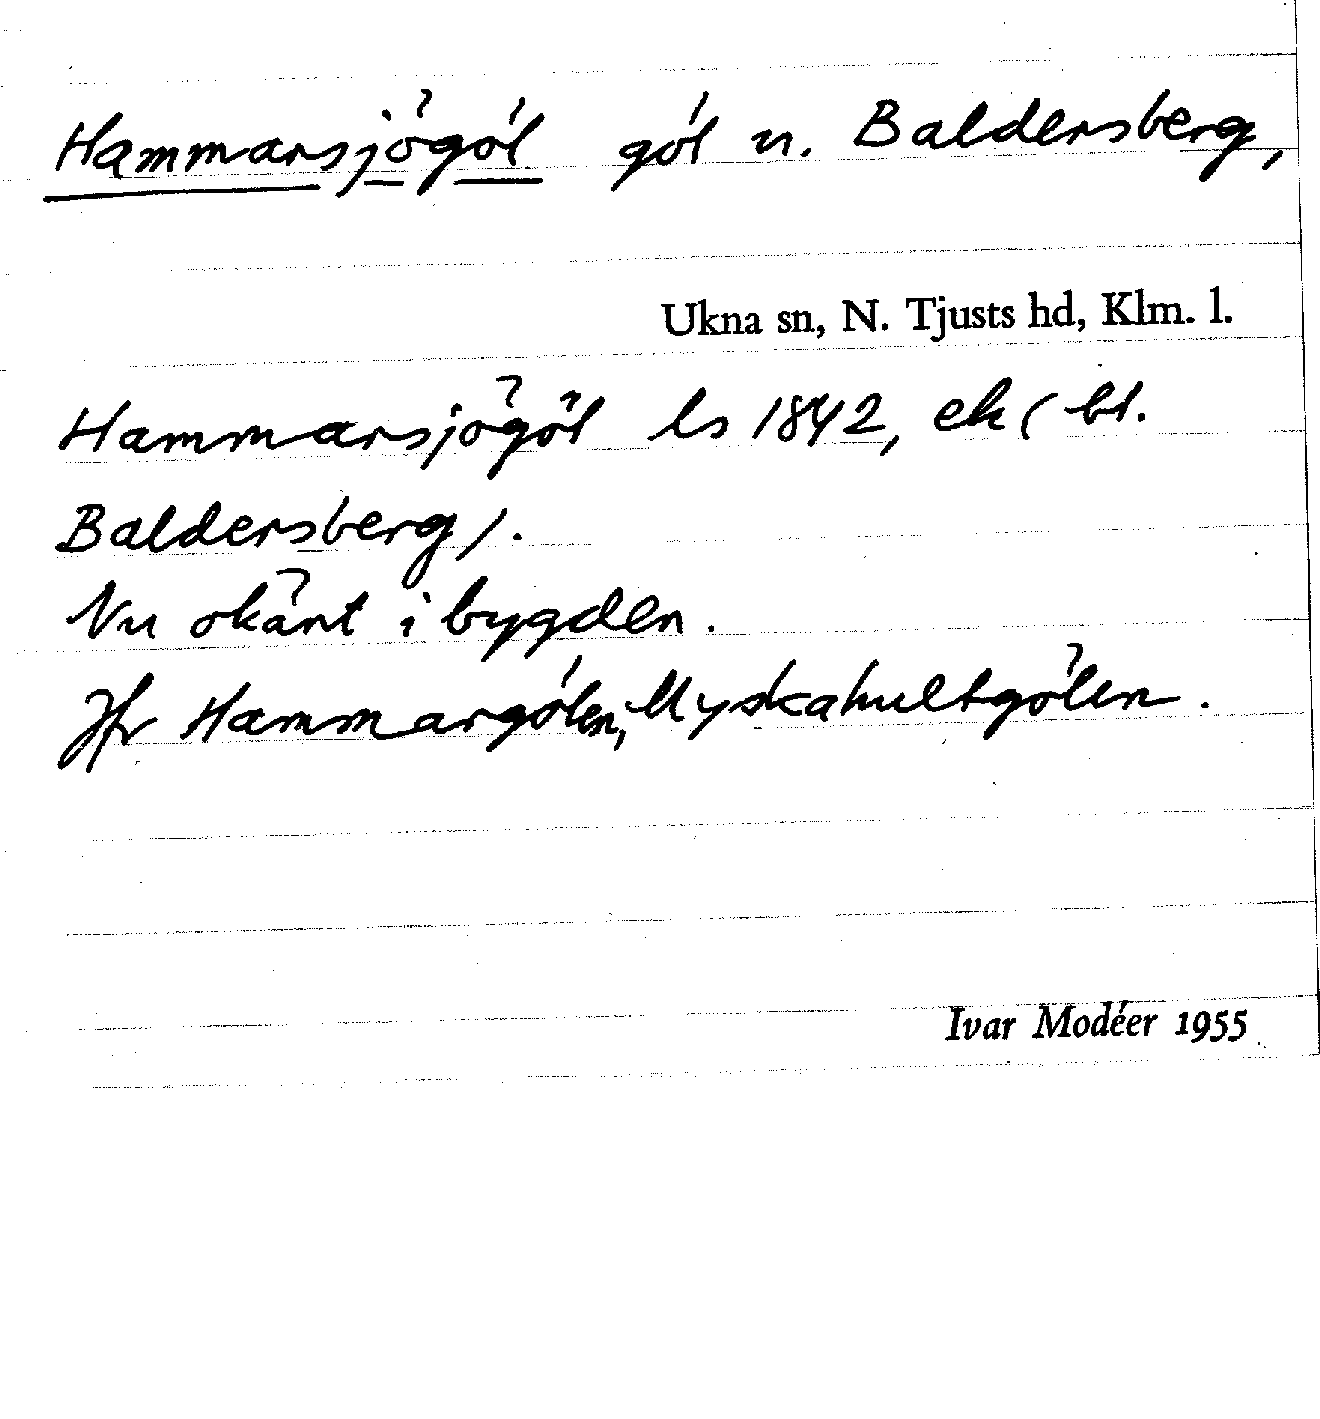 Hammarsjögöl göl n. Baldersberg,
Ukna sn, N. Tjusts hd, Klm. l.
Hammarsjögöl ls 1842, ek (bl.
Baldersberg).
Nu okänt i bygden.
Jfr Hammargölen, Myskahultgölen.
Ivar Modéer 1955